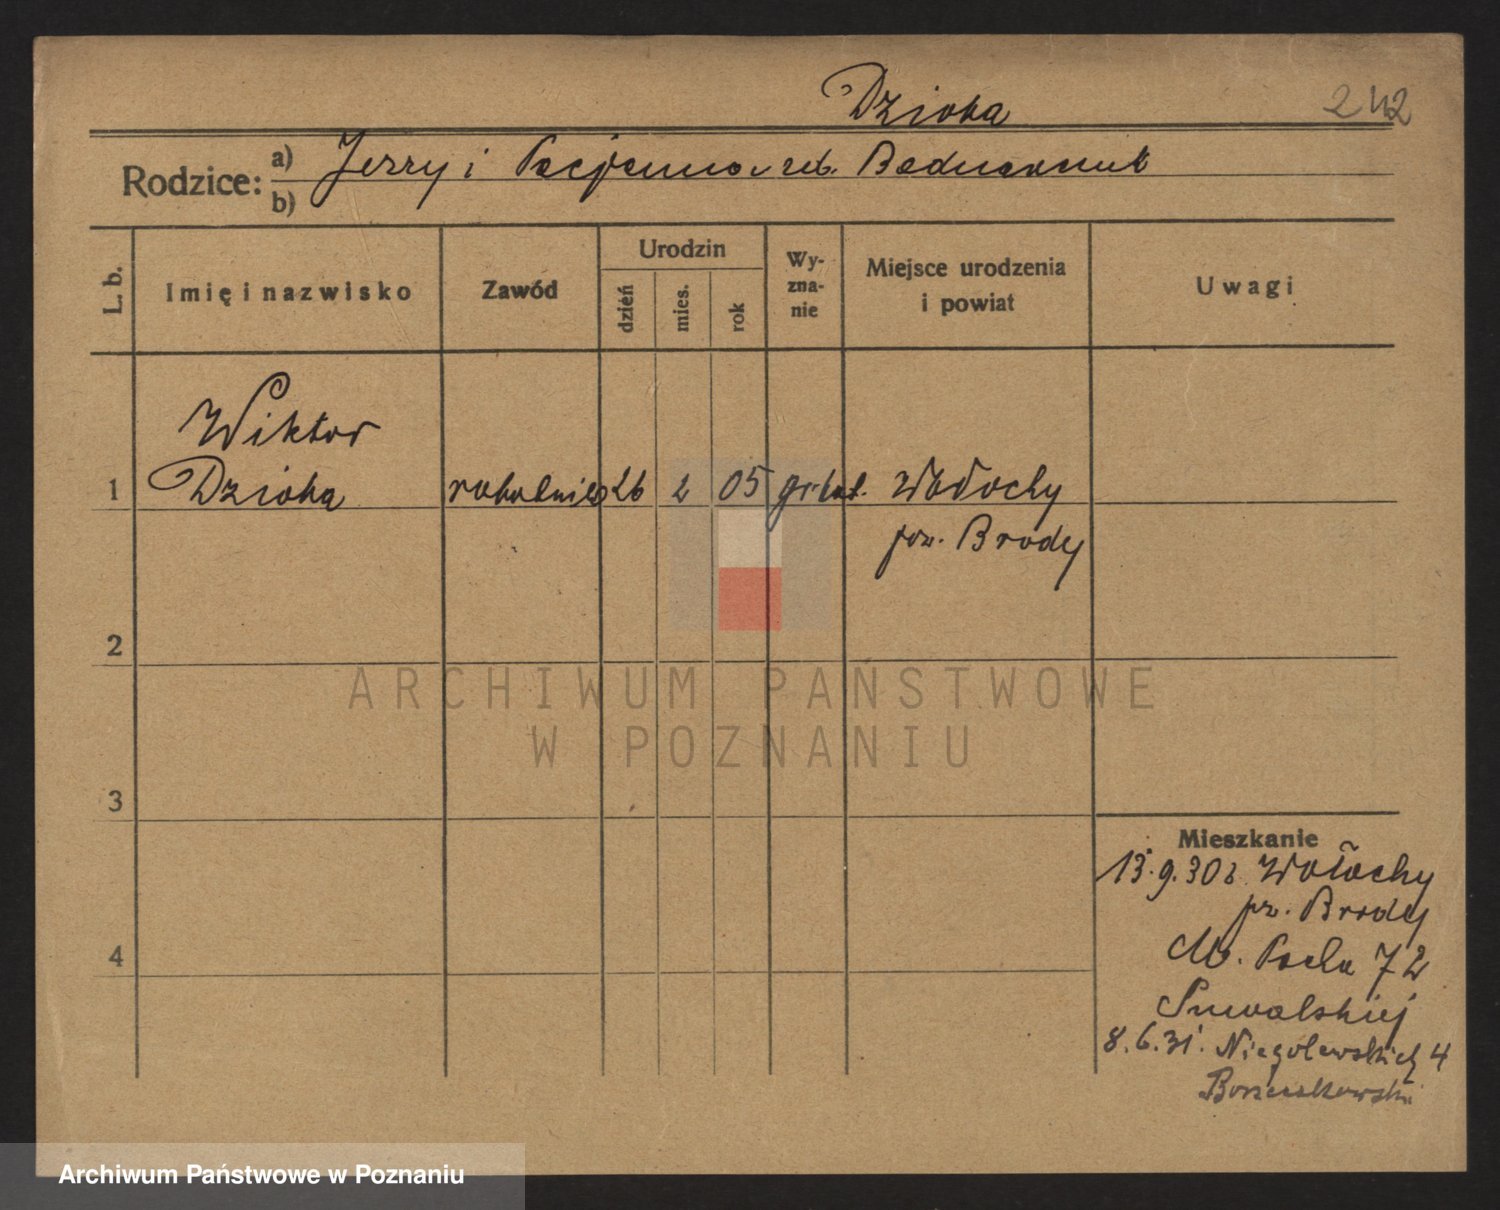 Dzioha
242
Rodzice:
a) Jerzy i Pacjanna z rob. Bednarczuk
b)
L. b.
Imię i nazwisko
Zawód
Urodzin
dzień
mies.
rok
Wy-
zna-
nie
Miejsce urodzenia
i powiat
Uwagi
Wiktor
1 Dzioha robotnik 26 2 05 gr. kat. Wołochy
pow. Brody
2
3
4
Mieszkanie
15.9.30 z Wołochy
pow. Brody
72
8.6.31. Niegolewskich 4
ARCHIWUM PAŃSTWOWE
W POZNANIU
Archiwum Państwowe w Poznaniu